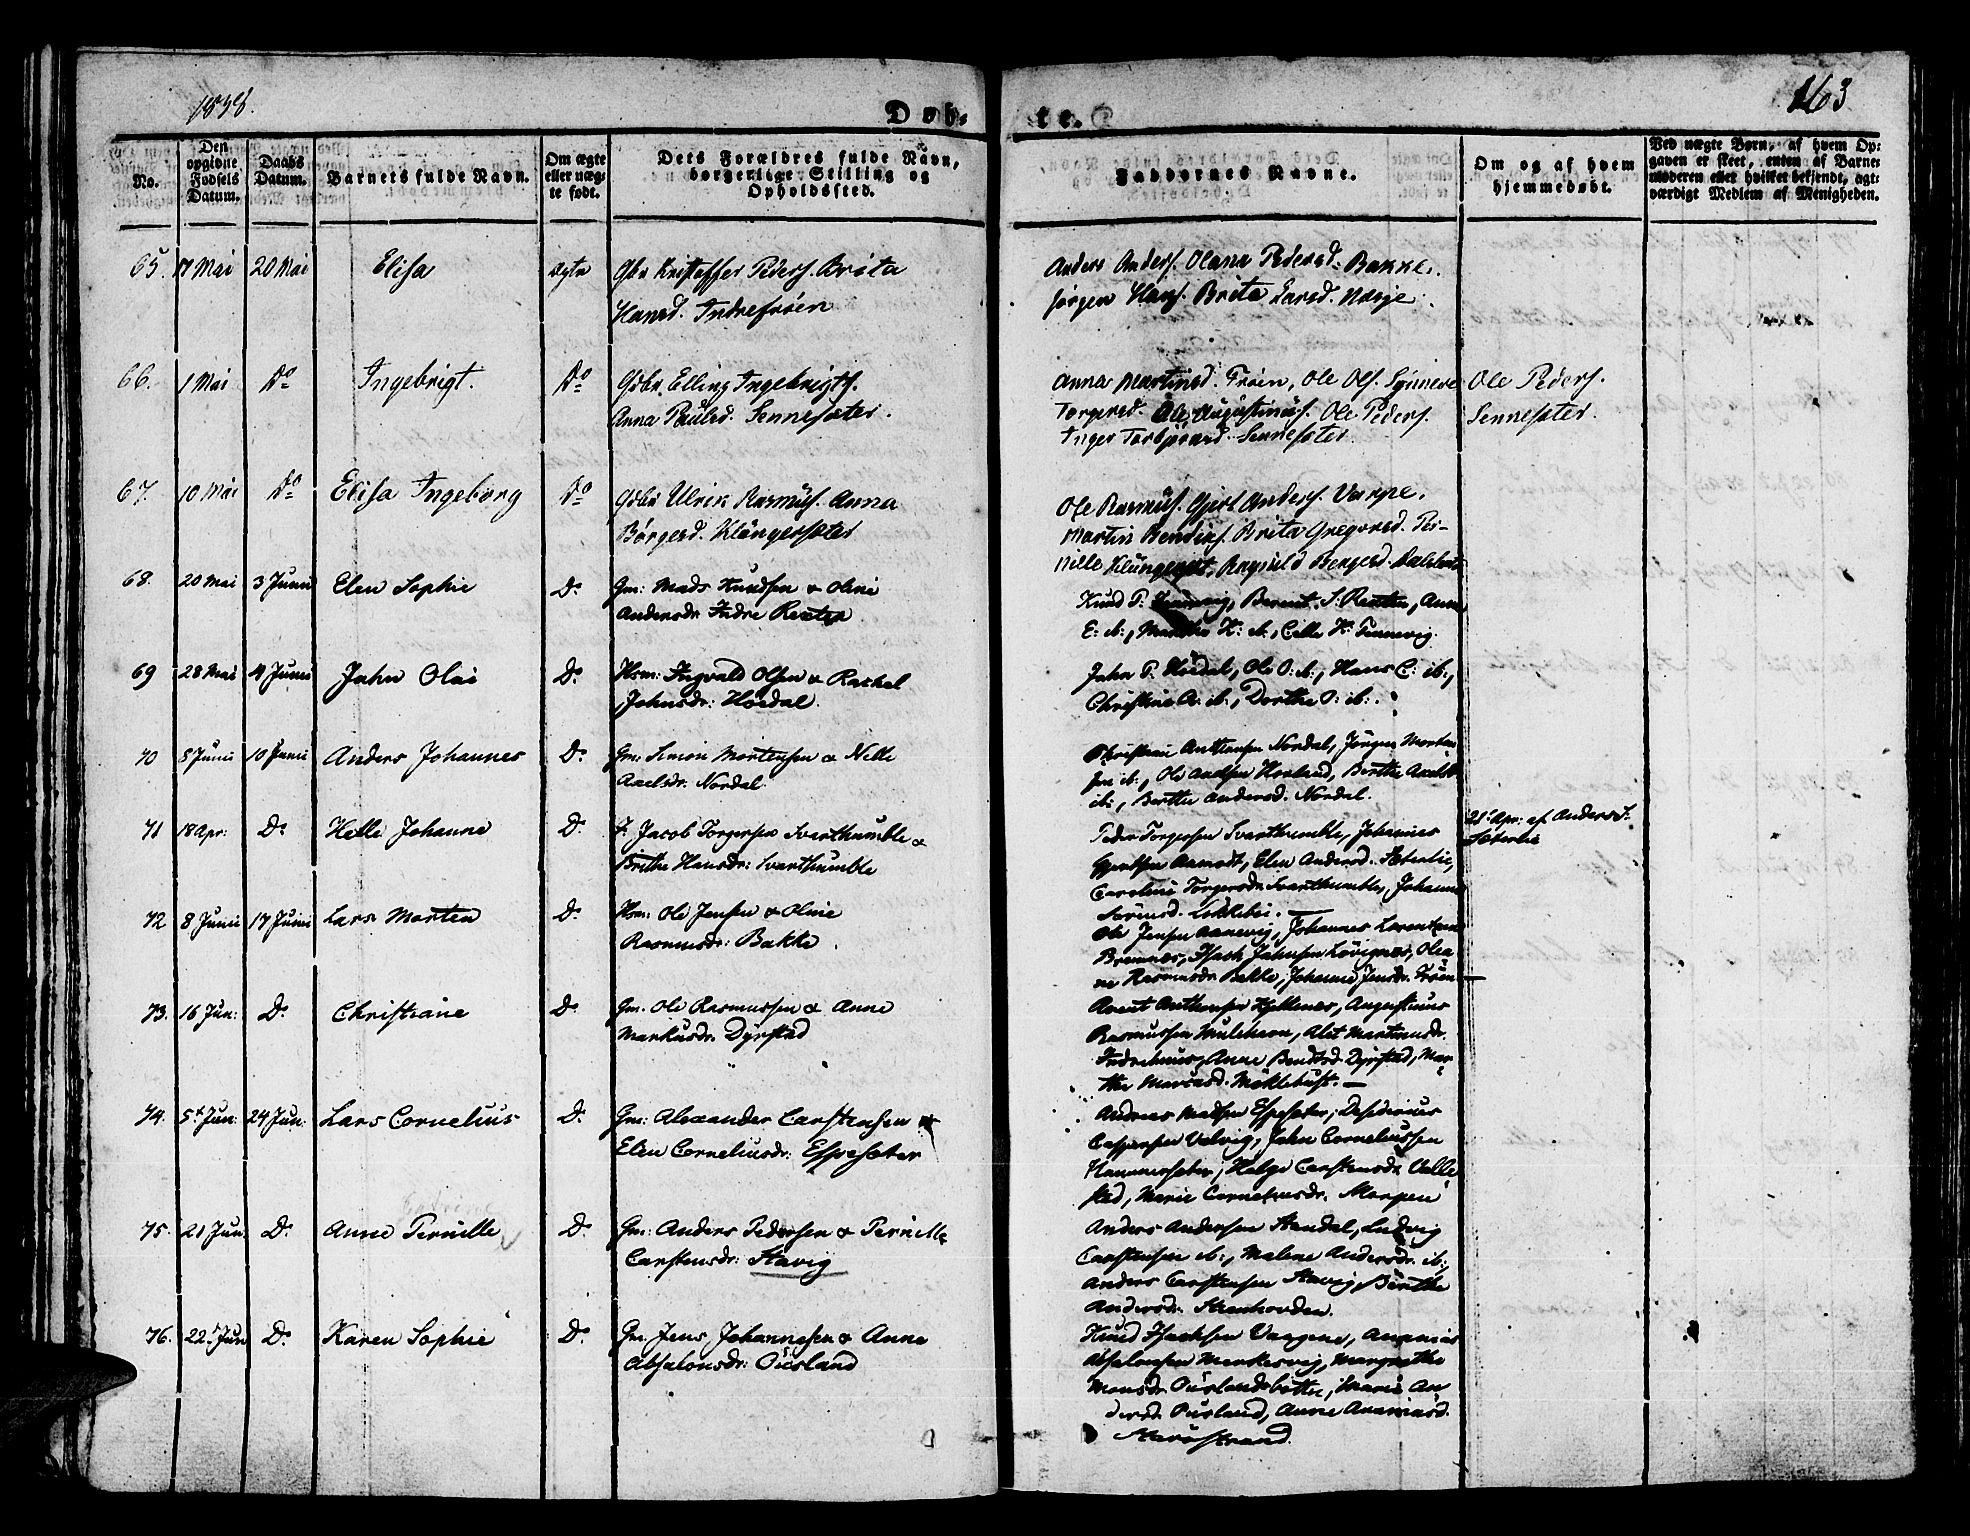 1838.
Døb-
te.
163
No.
Den opgivne Fødsels Datum.
Daabs Datum.
Barnets fulde Navn.
Om ægte eller uæg-te født.
Dets Forældres fulde Navn, borgerlige Stilling og Opholdssted.
Faddernes Navne.
Om og af hvem hjemmedøbt.
Ved uægte Børn, af hvem Op-
gaven er skeet, enten af Barne-
moderen eller hvilket bekjendt, agt-
værdigt Medlem af Menigheden.
65. 17 Mai 20 Mai Elisa ægte Gbr Kristoffer Peders. Brita
Hansd. Indrefrøien
Anders Anders. Olana Pedersd. Bakke.
Jørgen Hans. Brita Larsd. Nøsje.
66. 1 Mai Do Ingebrigt. Do Gdbr. Elling Ingebrigts.
Anna Paulsd. Sennesæter.
Anna Martinsd. Frøien, Ole Ols. Synneve
Torgersd. Ole Augustinus. Ole Peders.
Inger Torbjørnsd. Sennesæter.
Ole Peders.
Sennesæter.
67. 10 Mai Do Elisa Ingeborg Do Gdbr Ulrik Rasmus. Anna
Børgesd. Klüngersæter
Ole Rasmus. Gjert Anders. Varpe.
Martin Bendiks. Brita Gregorsd. Per-
nille Ragnild Bergesd.
68. 20 Mai 3 Junii Elen Sophie D. Gm: Mads Knudsen & Oline
Andersdr. Indre Rexter
Knud P. Berent S. Rexter, Anne
E: ib:, Marthe K: ib:, Celle K: Tennevig.
69 28 Mai 4 Junii John Olai D. Hsm: Ingvald Olsen & Rachel
Johnsdr: Høidal.
John P. Høidal, Ole O: ib:, Hans C: ib:,
Christine A: ib:, Dorthe O: ib:.
70 5 Junii 10 Junii Anders Johannes D. Gm: Simon Mortensen & Nille
Axelsdr. Nordal.
Christian Anthensen Nordal, Jørgen Morten
sen ib:, Ole Andsen Hovland, Berthe Axelsd.
ib:, Berthe Andersd. Nordal.
71 18 Apr: D. Helle Johanne D. F: Jacob Torgersen Svarthumble &
Brithe Hansdr: Svarthumble
Peder Torgersen Svarthumble, Johannes
Gjertsen Aamodt, Elen Andersd. Sæterlie,
Caroline Torgersdr. Svarthumble, Johanne
Sørensd. Løkkebøi.
21 Apr: af Anders S.
Sæterlie
72 8 Junii 17 Junii Lars Morten D. Hsm: Ole Jensen & Oline
Rasmusdr: Bakke.
Ole Jensen Aanevig, Johannes Larentsen
Bremnes, Isach Johnsen Løvignes, Olea-
ne Rasmusdr. Bakke, Johanne Jensdr. Frøien
73. 16 Jun: D. Christiane D. Gm: Ole Rasmussen & Anne
Markusdr. Dyrstad
Arent Anthensen Hellenes, Augustinus
Rasmussen Mulehavn, Alet Martinusdr.
Indrehuus, Anne Bendtsd. Dyrstad, Mar-
the Marcusd. Møklebust.
74. 5 Jun: 24 Jun: Lars Cornelius D. Gm: Alexander Carstensen &
Elen Corneliusdr: Espesæter
Andreas Madsen Espesæter, Desiderius
Caspersen Valvig, John Corneliussen
Hammersæter, Helge Carstensdr. Valle
stad, Marie Corneliusdr. Marpen
75. 21 Jun: D. Anne Pernille D. Gm: Anders Pedersen & Pernille
Carstensdr: Stavig
Anders Andersen Standal, Ludvig
Carstensen ib:, Malene Andersdr. ib:,
Anders Carstensen Stavig, Berthe
Andersdr. Steenhovden.
76. 22 Jun D. Karen Sophie D. Gm: Jens Johannesen & Anne
Absalonsdr: Ousland
Knud Isachsen Vaagene, Ananias
Absalonsen Marchesvig, Margrethe
Monsdr. Ouslandsbotten, Marie An
dersd. Ousland, Anne Ananiasd.